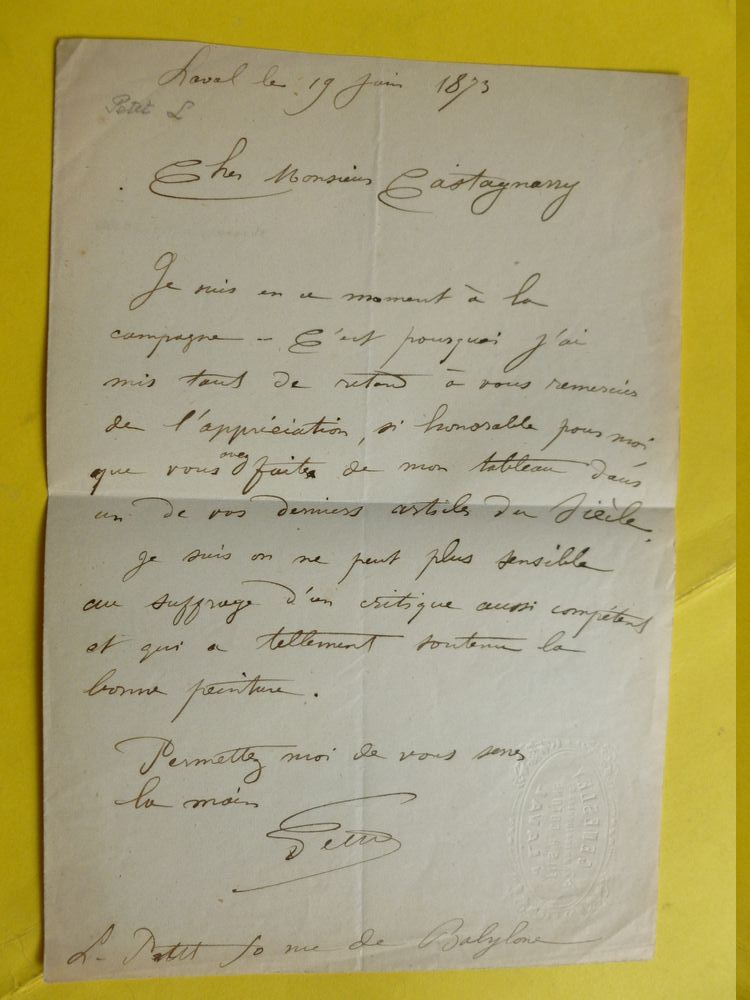 Laval le 19 juin 1873
Petit L
Cher Monsieur Castagnary
Je suis en ce moment à la
campagne – C'est pourquoi j'ai
mis tant de retard à vous remercier
de l'appréciation, si honorable pour moi
que vous avez faite de mon tableau dans
un de vos derniers articles du Siècle.
Je suis on ne peut plus sensible
au suffrage d'un critique aussi compétent
et qui a tellement soutenu la
bonne peinture.
Permettez moi de vous serrer
la main
L. Petit 50 rue de Babylone